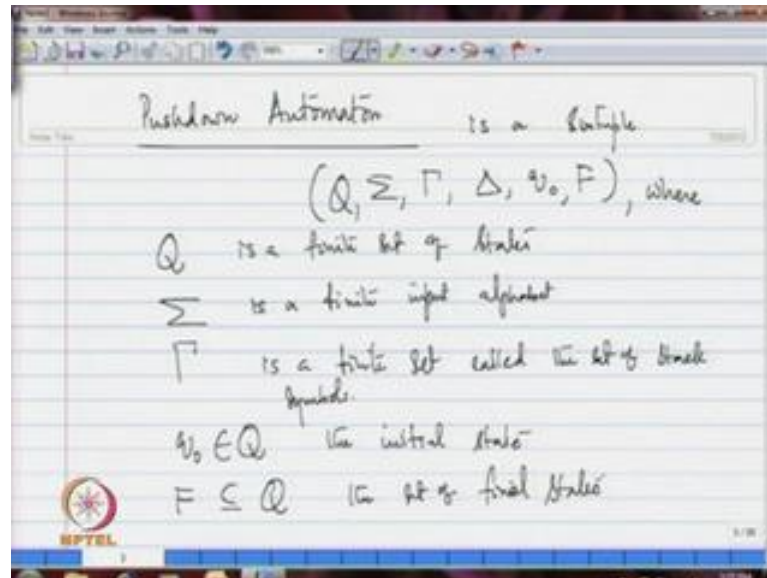 Pushdown Automaton is a Sixtuple
(Q, Σ, Γ, Δ, q₀, F), where
Q is a finite set of states
Σ is a finite input alphabet
Γ is a finite set called the set of stack
symbols.
q₀ ∈ Q the initial state
F ⊆ Q the set of final states
NPTEL